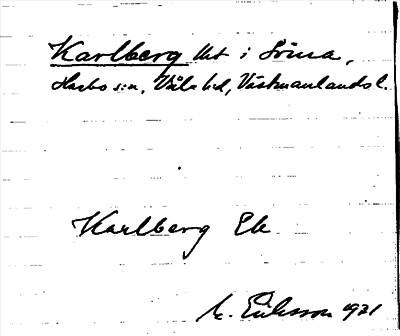 Karlberg lht i Svina,
Harbo s:n, Våla hd, Västmanlands l.
Karlberg Ek
M. Eriksson 1931